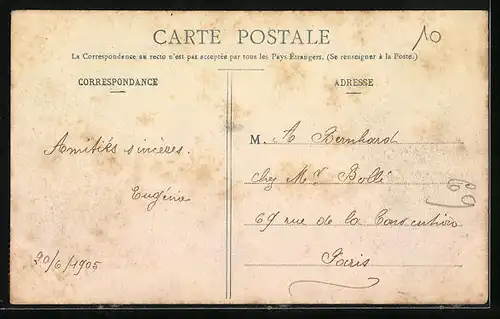 CARTE POSTALE
10
La Correspondance au recto n'est pas acceptée par tous les Pays Étrangers. (Se renseigner à la Poste.)
CORRESPONDANCE
Amitiés sincères.
Eugénie
20/6/1905
ADRESSE
M. A Bernhard
chez Mr Bollé
69 rue de la Convention
Paris
69